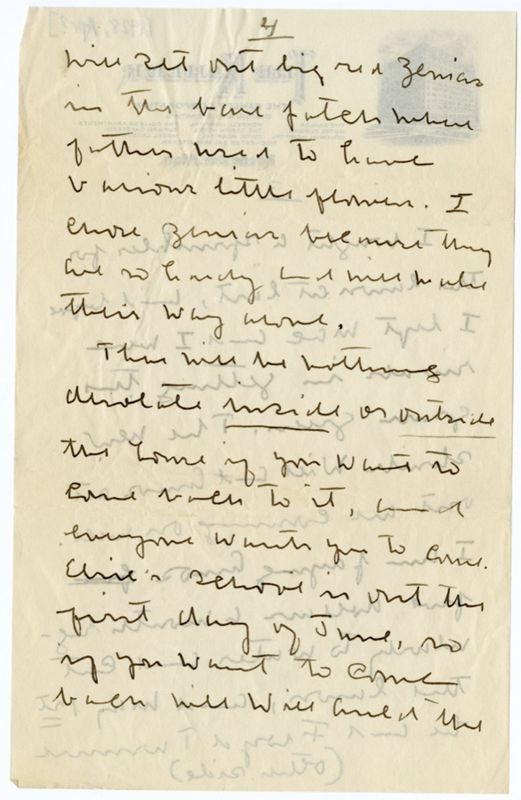 4
will set out big red Zenias
in the bare patch where
father used to have
various little flowers. I
chose Zenias because they
are so hardy and will make
their way alone.
There will be nothing
desolate inside or outside
the house if you want to
come back to it, and
everyone wants you to come.
Elsie's school is out the
first day of June, so
if you want to come
back with Will and the